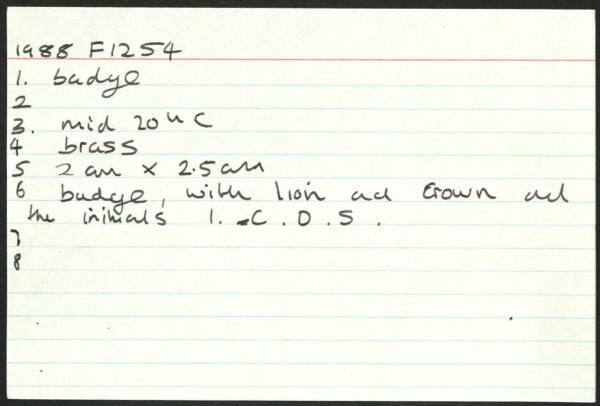 1988 F1254
1. badge
2
3. mid 20th C
4 brass
5 2 cm x 2.5 cm
6 badge, with lion and crown and
the initials I. C. D. S.
7
8